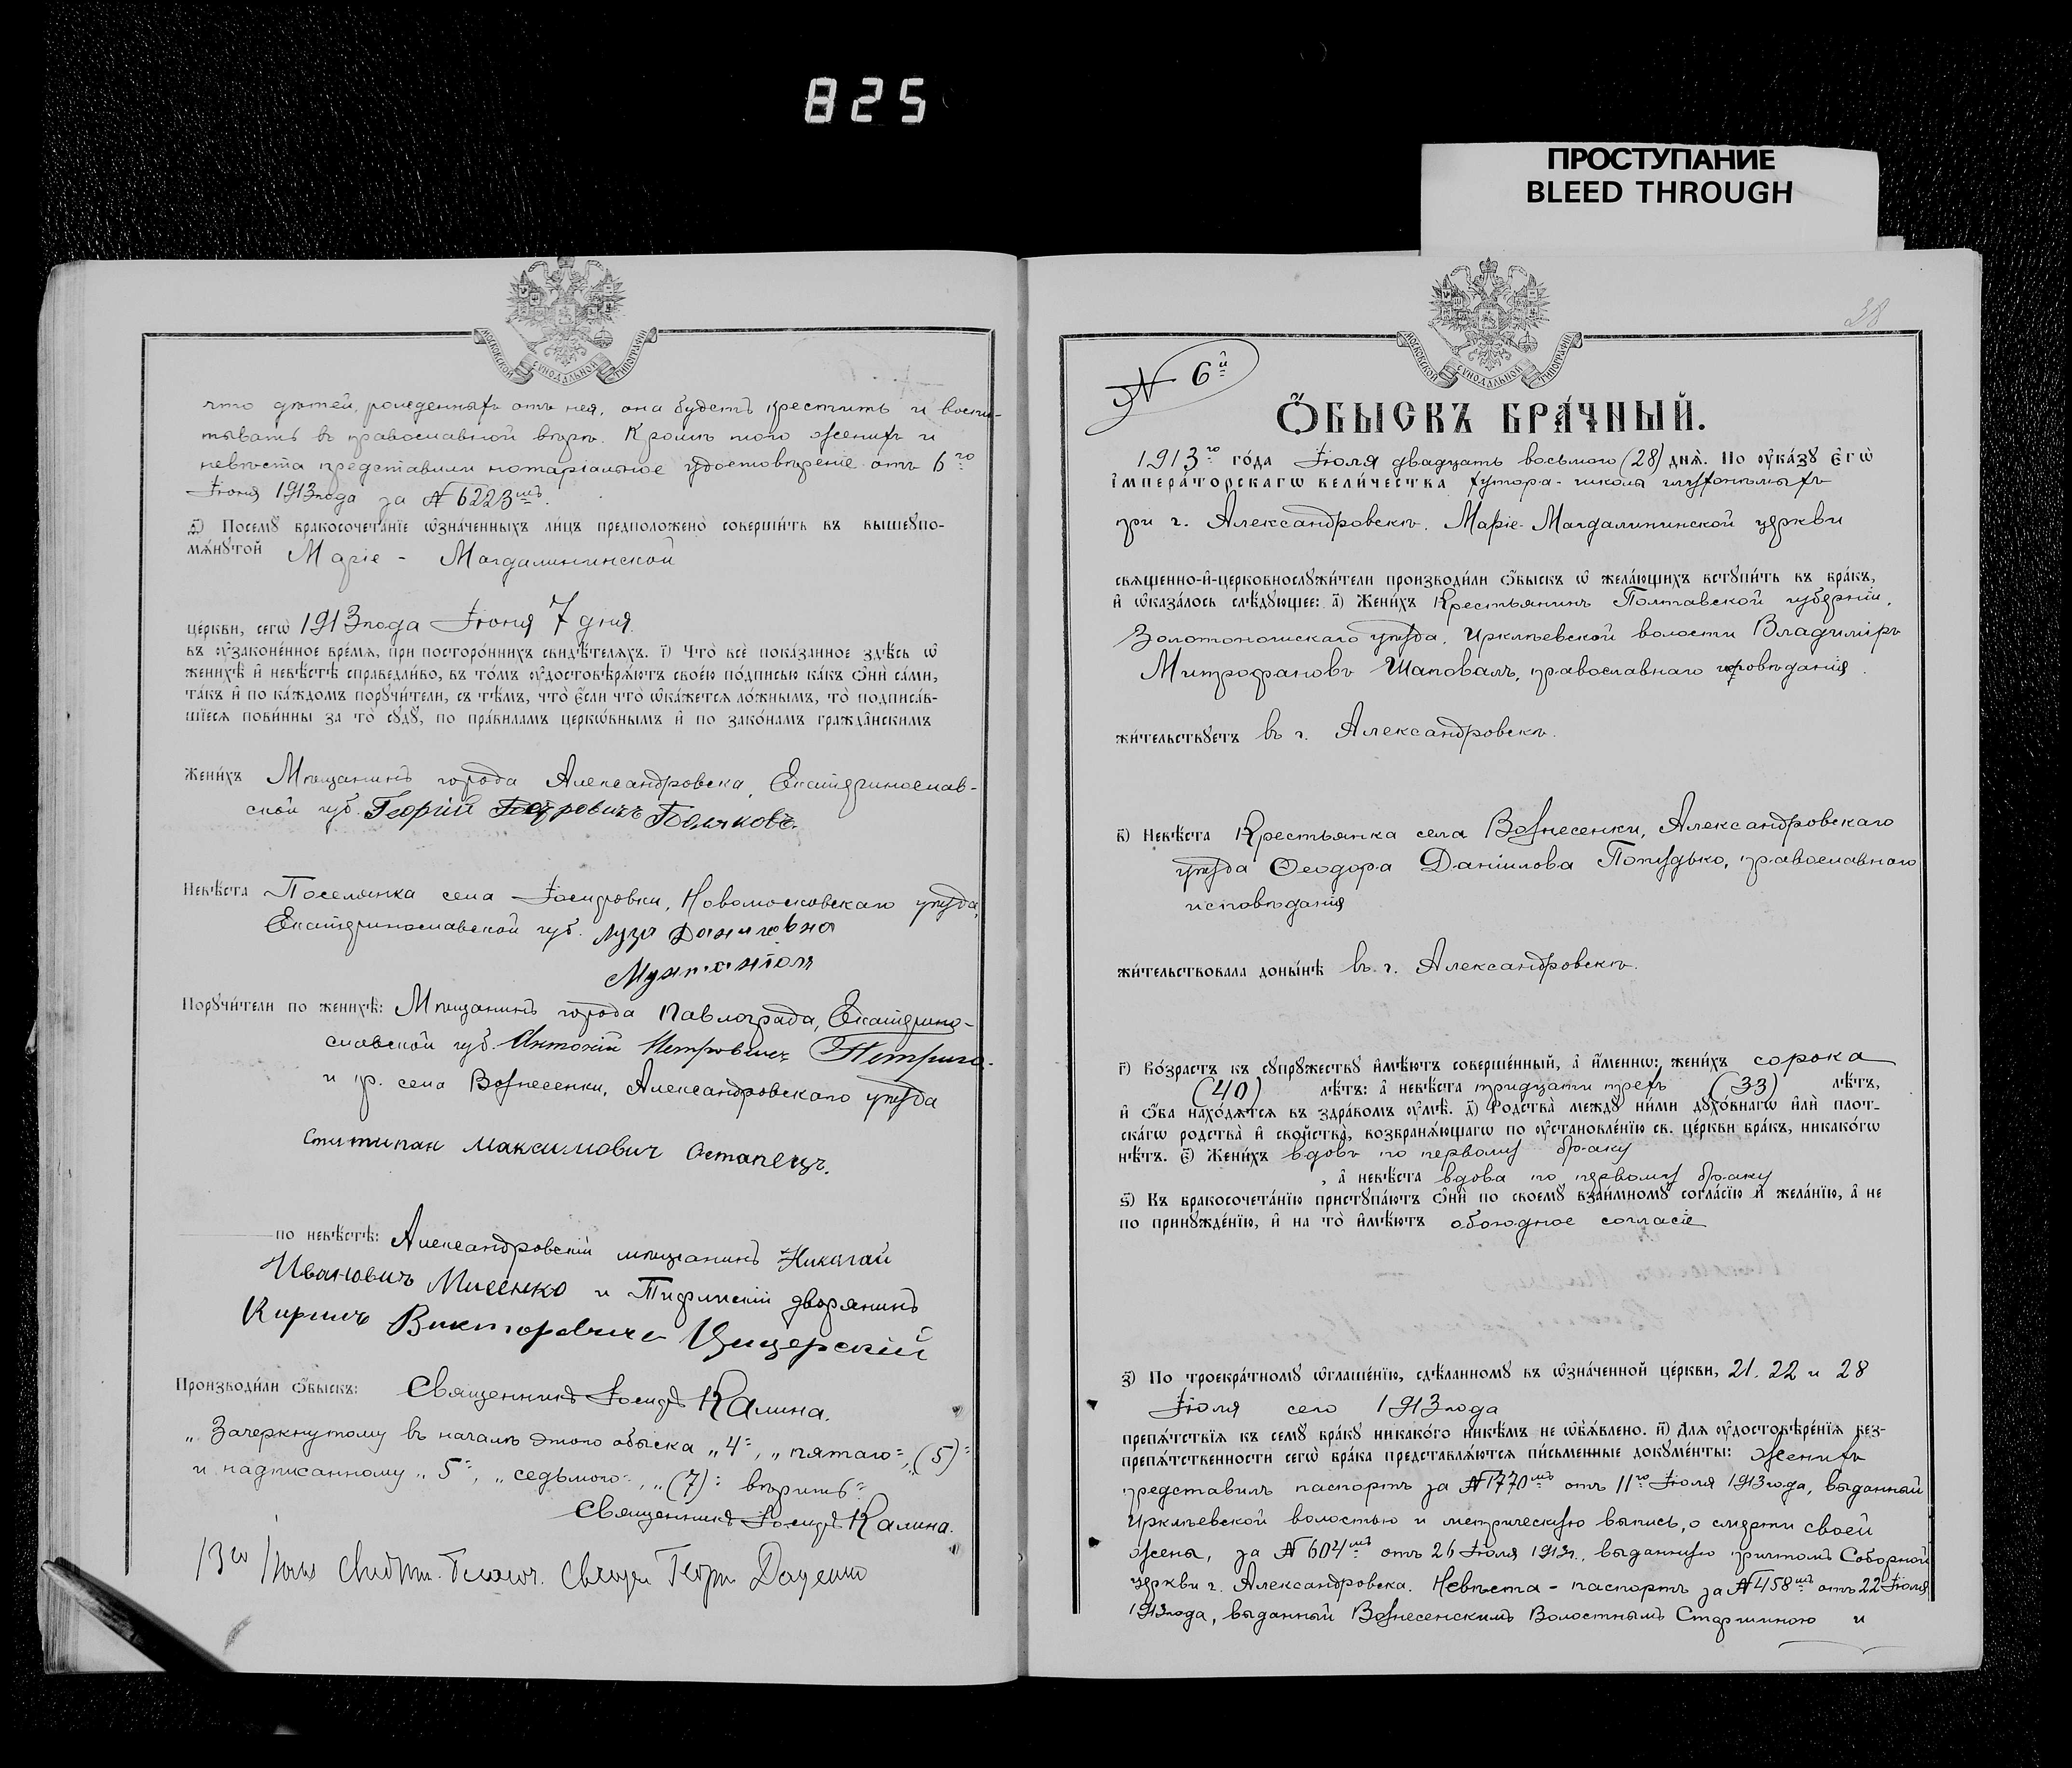 825
ПРОСТУПАНИЕ
BLEED THROUGH
МОСКОВСКОЙ СУНОДАЛЬНОЙ ТИПОГРАФІИ
что дѣтей, рожденныхъ отъ нея, она будетъ крестить и воспи-
тывать въ православной вѣрѣ. Кромѣ того женихъ и
невѣста представили нотаріальное удостовѣреніе отъ 6го
Іюня 1913 года за № 6223мъ.
д҃) Посемꙋ бракосочета́нїе ѡзна́ченныхъ ли́цъ предположено̀ соверши́ть въ вышеꙋпо-
мѧ́нꙋтой Маріе - Магдалининской
це́ркви, сегѡ̀ 1913 года Іюня 7 дня
въ ꙋ҆зако́ненное вре́мѧ, при посторо́ннихъ свидѣ́телѧхъ. і҃) Что̀ всѐ пока́занное здѣ́сь ѡ҆
женихѣ̀ и҆ невѣ́стѣ справедли́во, въ то́мъ ꙋ҆достовѣрѧ́ютъ свое́ю по́дписью ка́къ ѻ҆нѝ са́ми,
та́къ и҆ по ка́ждомъ порꙋчи́тели, съ тѣ́мъ, что̀ є҆́сли что̀ ѡ҆ка́жетсѧ ло́жнымъ, то̀ подписа́в-
шїесѧ пови́нны за то̀ сꙋдꙋ̀, по пра́виламъ церко́внымъ и҆ по зако́намъ гражда́нскимъ
Жени́хъ Мѣщанинъ города Александровска, Екатеринослав-
ской губ. Георгій Петровичъ Поляковъ.
Невѣ́ста Поселянка села Іосиповки, Новомосковскаго уѣзда,
Екатеринославской губ. Луза Даниловна
Порꙋчи́тели по женихѣ̀: Мѣщанинъ города Павлограда, Екатерино-
славской губ. Антоній Петровичъ Петрига.
и кр. села Вознесенки, Александровскаго уѣзда
Ститипан Максимович Остапецъ.
по невѣ́стѣ: Александровскій мѣщанинъ Николай
Ивановичъ Мисенко и Тифлискій дворянинъ
Кирилъ Викторовичъ Цицерскій
Производи́ли ѻ҆́быскъ: Священникъ Іосифъ Калина.
„Зачеркнутому въ началѣ этого обыска „4", „пятаго", „(5)"
и надписанному „5", „седьмого", „(7)" вѣрить"
Священникъ Іосифъ Калина.
13го Іюня Свидѣт. Благоч. Свящ. Георг. Доценко
38
МОСКОВСКОЙ СУНОДАЛЬНОЙ ТИПОГРАФІИ
№ 6й
Ѻ҆́БЫСКЪ БРА́ЧНЫЙ.
1913го го́да Іюля двадцать восьмого (28) днѧ̀. По ꙋ҆ка́зꙋ є҆гѡ̀
і҆мпера́торскагѡ вели́чества хутора-школы глухонѣмыхъ
при г. Александровскѣ. Маріе-Магдалининской церкви
свѧще́нно-и҆-церковнослꙋжи́тели производи́ли ѻ҆́быскъ ѡ҆ жела́ющихъ встꙋпи́ть въ бра́къ,
и҆ ѡ҆каза́лось слѣ́дꙋющее: а҃) Жени́хъ Крестьянинъ Полтавской губерніи,
Золотоношскаго уѣзда, Иркліевской волости Владиміръ
Митрофановъ Шаповалъ, православнаго исповѣданія.
жи́тельствꙋетъ въ г. Александровскѣ.
в҃) Невѣ́ста Крестьянка села Вознесенки, Александровскаго
уѣзда Ѳеодора Даніилова Попудько, православнаго
исповѣданія
жи́тельствовала доны́нѣ въ г. Александровскѣ.
г҃) Во́зрастъ къ сꙋпрꙋ́жествꙋ и҆мѣ́ютъ соверше́нный, а҆ и҆́менно: жени́хъ сорока
(40) лѣ́тъ: а҆ невѣ́ста тридцати трехъ (33) лѣ́тъ,
и҆ ѻ҆́ба нахо́дѧтсѧ въ здра́вомъ ꙋ҆мѣ̀. д҃) Родства̀ междꙋ̀ ни́ми дꙋхо́внагѡ и҆лѝ плот-
ска́гѡ родства̀ и҆ сво́йства̀, возбранѧ́ющагѡ по ꙋ҆становле́нїю св. це́ркви бра́къ, никако́гѡ
нѣ́тъ. є҃) Жени́хъ вдовъ по первому браку
, а҆ невѣ́ста вдова по первому браку
ѕ҃) Къ бракосочета́нїю пристꙋпа́ютъ ѻ҆нѝ по своемꙋ̀ взаи́мномꙋ согла́сїю и҆ жела́нїю, а҆ не
по принꙋжде́нїю, и҆ на то̀ и҆мѣ́ютъ обоюдное согласіе
з҃) По троекра́тномꙋ ѡ҆глаше́нїю, сдѣ́ланномꙋ въ ѡ҆зна́ченной це́ркви, 21. 22 и 28
Іюля сего 1913 года
препѧ́тствїѧ къ семꙋ̀ бра́кꙋ никако́гѡ никѣ́мъ не ѡ҆б̾ѧ́влено. и҃) Для ꙋ҆достовѣре́нїѧ без-
препѧ́тственности сегѡ̀ бра́ка представлѧ́ютсѧ пи́сьменные докꙋме́нты: Женихъ
представилъ паспортъ за № 1770мъ отъ 11го Іюля 1913 года, выданный
Иркліевской волостью и метрическую выпись, о смерти своей
жены, за № 604мъ отъ 26 Іюля 1913 г., выданную причтомъ Соборной
церкви г. Александровска. Невѣста - паспортъ за № 458мъ отъ 22 Іюля
1913 года, выданный Вознесенскимъ Волостнымъ Старшиною и